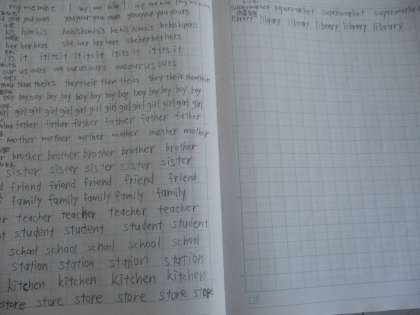 I my me mine I my me mine
you your you yours you your you yours
he his him his he his him his
her her hers she her her hers she her her hers
it it its it it its it it its it
our us ours we our us ours we our us ours
their them theirs they their them theirs they their them theirs
boy boy boy boy boy boy boy boy boy boy
girl girl girl girl girl girl girl girl girl girl
father father father father father father
mother mother mother mother mother mother
brother brother brother brother brother
sister sister sister sister sister
friend friend friend friend friend
family family family family family
teacher teacher teacher teacher
student student student student
school school school school school
station station station station
kitchen kitchen kitchen kitchen
store store store store store store
supermarket supermarket supermarket supermarket
library library library library library library